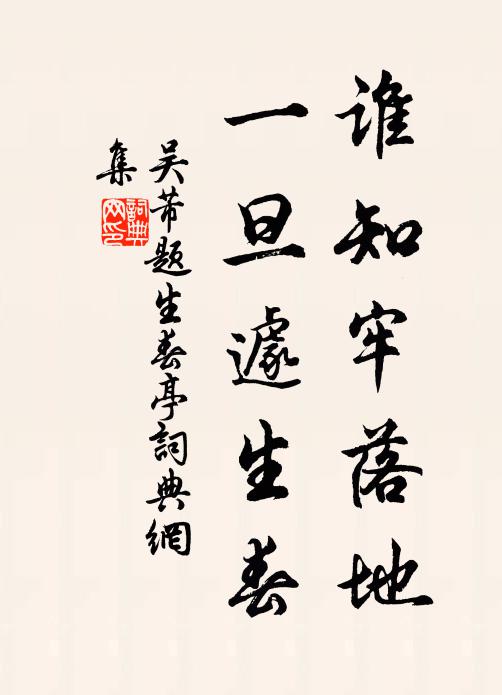 谁知牢落地
一旦遽生春
吴芾题生春亭词典網
集
詞典
网印